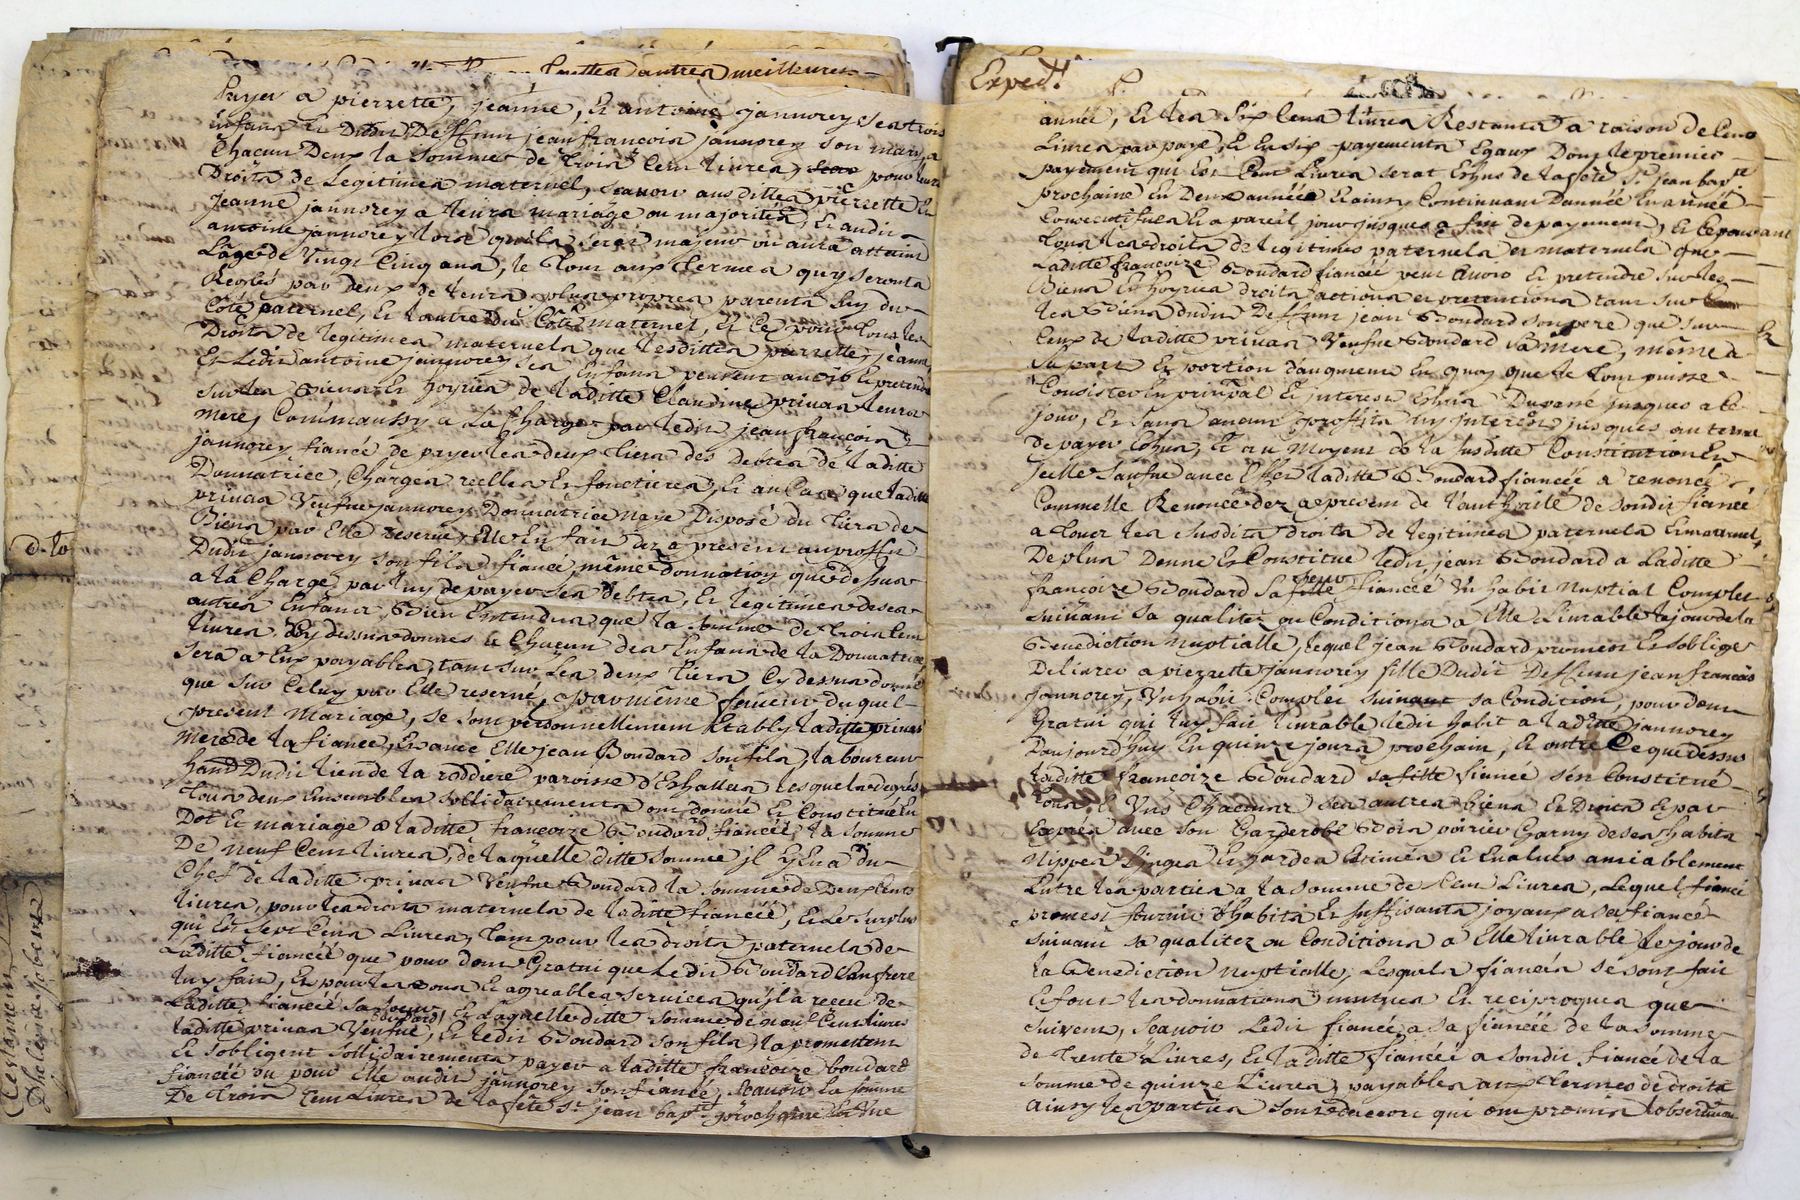 Lxttes dautres meilleures
payer a pierrette, jeanne, Et antoine jannorey ses trois
infans Et Dudit Deffunt jean françois jannorey son mary, a
Chacun Deux la Somme de Trois Cent livres, pour leurs
Droits de Legitimes maternel, scavoir aus dittes pierrette Et
jeanne jannorey a leurs mariage ou majorités, Et audit
antoine jannorey lorsé quils serat majeur ou aura attaint
Lâge de Vingt Cinq ans, le Tout aux Termes quy seronts
Reglés par Deux de leurs plus propres parents Luy du
Côté paternel, Et lautre du Côté maternel, Et Ce pour Tous les
Droits de legitimes maternels que lesdittes pierrette, jeanne,
Et Ledit antoine jannorey ses Enfans peuvent avoir Et pretendre
sur les Biens Et hoyries de laditte Claudine privas leurs
mere, Comm'aussy a La Charge par ledit jean françois
jannorey fiancé de payer les deux Tiers des Debtes de laditte
Donnatrice, Charges reelles Et fonctieres, Et au Cas que laditte
privas Veufue jannorey Donnatrice naye Disposé du Tiers de
Biens par Elle reservé, Elle En fait dez a present au proffit
Dudit jannorey son fils fiancé, même donnation que dessus
a la Charge par luy de payer ses debtes, Et legitimes de ses
autres Enfans, Bien Entendus que la somme de Trois Cent
livres Cy dessus donnés a Chacun des Enfans de la Donnatrice,
sera a Eux payables, tant sur Les deux Tiers Cy dessus donné
que sur Celuy par Elle reservé, Par même faveur duquel
present Mariage, se sont personnellement Etably laditte privas
mere de la fiancée, Et avec Elle jean Boudard son fils, laboureur
hand Dudit lieu de la roddiere paroisse d'Eshallas lesquels degrés
Tous deux Ensembles sollidairements ont donné Et Constitué En
Dot Et mariage a laditte françoize Boudard fiancée, la somme
De neuf Cent livres, de laquelle ditte somme il y En a du
Chef de laditte privas Veufue Boudard la somme de Deux Cents
livres, pour les droits maternels de laditte fiancée, Et Le surplus
qui Est sept Cents Livres, Tant pour les droits paternels de
Laditte fiancée que pour dont Gratuit que Ledit Boudard Son frere
luy fait, Et pour les bons Et agreables services qu'il a receu de
Laditte fiancée sa soeur, Et Laquelle ditte somme de neuf Cent livres
Boudard
laditte privas Veufue, Et ledit Boudard son fils, la promettent
Et s'obligent sollidairements payer a laditte françoize boudard
fiancée ou pour Elle audit jannorey son fiancé, Scavoir la somme
De Trois Cent Livres de la fête St jean bapte prochaine En Une
d. lo
Testament
D'helene jobert
Exped.t
année, Et les Six Cens livres Restants a raison de Cent
Livres par paye, Et En six payements Egaux Dont le premier
payement qui Est Cent Livres serat Eshus de la fête St jean bapte
prochaine En Deux années Et ainsy Continuant D'année En année
Consecutifues Et a pareil jour jusques a fin de payement, Et Ce pour Tout
Tous les droits de legitimes paternels et maternels que
Laditte françoize Boudard fiancée peut avoir Et pretendre sur les
Biens Et hoyries droits actions et pretentions tant sur
les Biens dudit Deffunt jean Boudard son pere que sur
Ceux de laditte privas Veufue Boudard sa mere, même a
sa part Et portion d'augment En quoy que le tout puisse
Consister En prinpal Et interest Eshus Du passé jusques a Ce
jour, Et sans aucun proffits ny interest jusques au terme
De payer Eshus, Et au Moyent de la susditte Constitution En
Jcelle Saufue avec Elle laditte Boudard fiancée a renoncé
Comm'elle Renonce dez a present de l'authorité de sondit fiancé
a Tout les susdits droits de legitimes paternels Et maternel,
De plus Donne Et Constitue ledit jean Boudard a Laditte
françoize Boudard sa soeur fiancée Un habit Nuptial Complet
suivant sa qualitez ou Conditions a Elle Livrable le jour de la
Benediction nuptialle, lequel jean Boudard promest Et s'oblige
Delivrer a pierrette jannorey fille Dudit Deffunt jean françois
jannorey, Un habit Complet suivant sa Condition, pour dont
Gratuit qui luy fait livrable ledit habit a laditte jannorey
Daujourd'huy En quinze jours prochain, Et outre Ce que dessus
laditte françoize Boudard fiancée s'en Constitué
Tous Et Uns Chacuns ses autres biens Et Droits Et par
Exprés avec son Garderobe Bois noirier Garny de ses habits
Nippes Linges Et hardes Estimés Et Evalués amiablement
Entre les parties a la somme de Cent Livres, Lequel fiancé
promest fournir d'habits Et suffisants joyaux a sa fiancée
suivant sa qualitez ou Conditions a Elle livrable le jour de
la Benediction nuptialle, Lesquels fiancés se sont fait
Et font les donnations mutues Et reciproques que
suivent, Scavoir Ledit fiancé a sa fiancée de la somme
de Trente Livres, Et laditte fiancée a sondit fiancé de la
somme de quinze Livres, payables aux Termes de droits
ainsy les parties sont d'accort qui ont promis l'observation